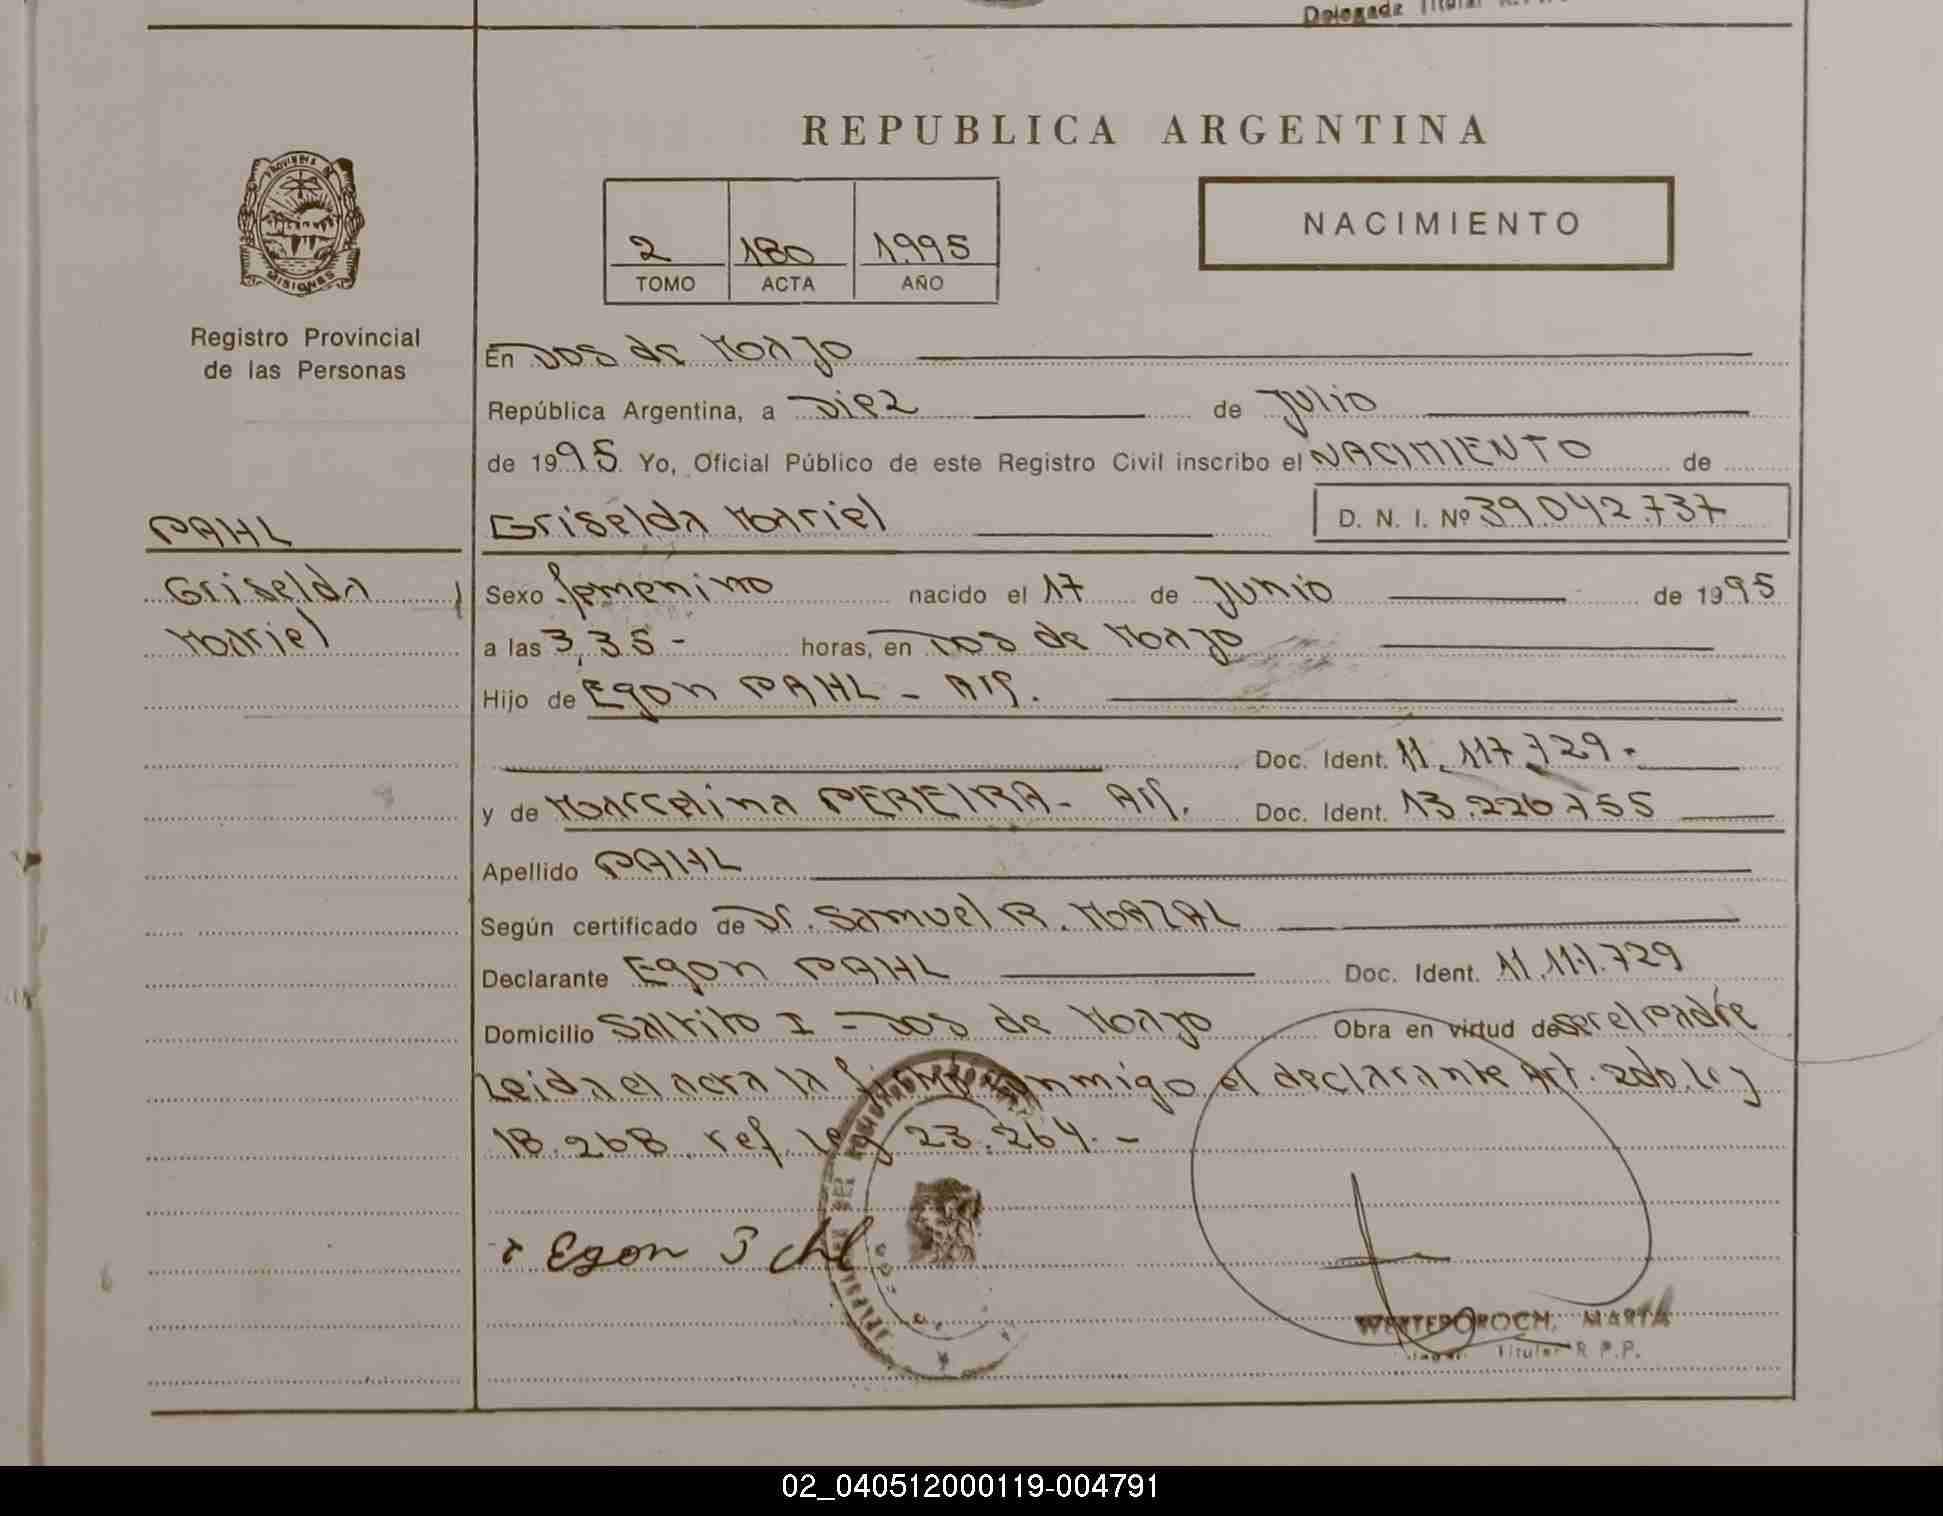 Delegada Titular
REPUBLICA ARGENTINA
PROVINCIA DE MISIONES
2 180 1.995
TOMO ACTA AÑO
NACIMIENTO
Registro Provincial
de las Personas
En Dos de Mayo
República Argentina, a Diez de Julio
de 1995. Yo, Oficial Público de este Registro Civil inscribo el NACIMIENTO de
PAHL
Griselda Mariel
Griselda Mariel D. N. I. Nº 39.042.737
Sexo femenino nacido el 17 de Junio de 1995
a las 3,35- horas, en Dos de Mayo
Hijo de Egon PAHL - Arg.
Doc. Ident. 11.117.729.
y de Marcelina PEREIRA - Arg. Doc. Ident. 13.226.755
Apellido PAHL
Según certificado de Dr. Samuel R. MAZAL
Declarante Egon PAHL Doc. Ident. 11.117.729
Domicilio Saltito I - Dos de Mayo Obra en virtud de ser el padre
Leida el acta la firma conmigo el declarante Art. 2do. Ley
18.268 ref. Ley 23.264.-
Egon Pahl
MARTA
Titular R.P.P.
02_040512000119-004791